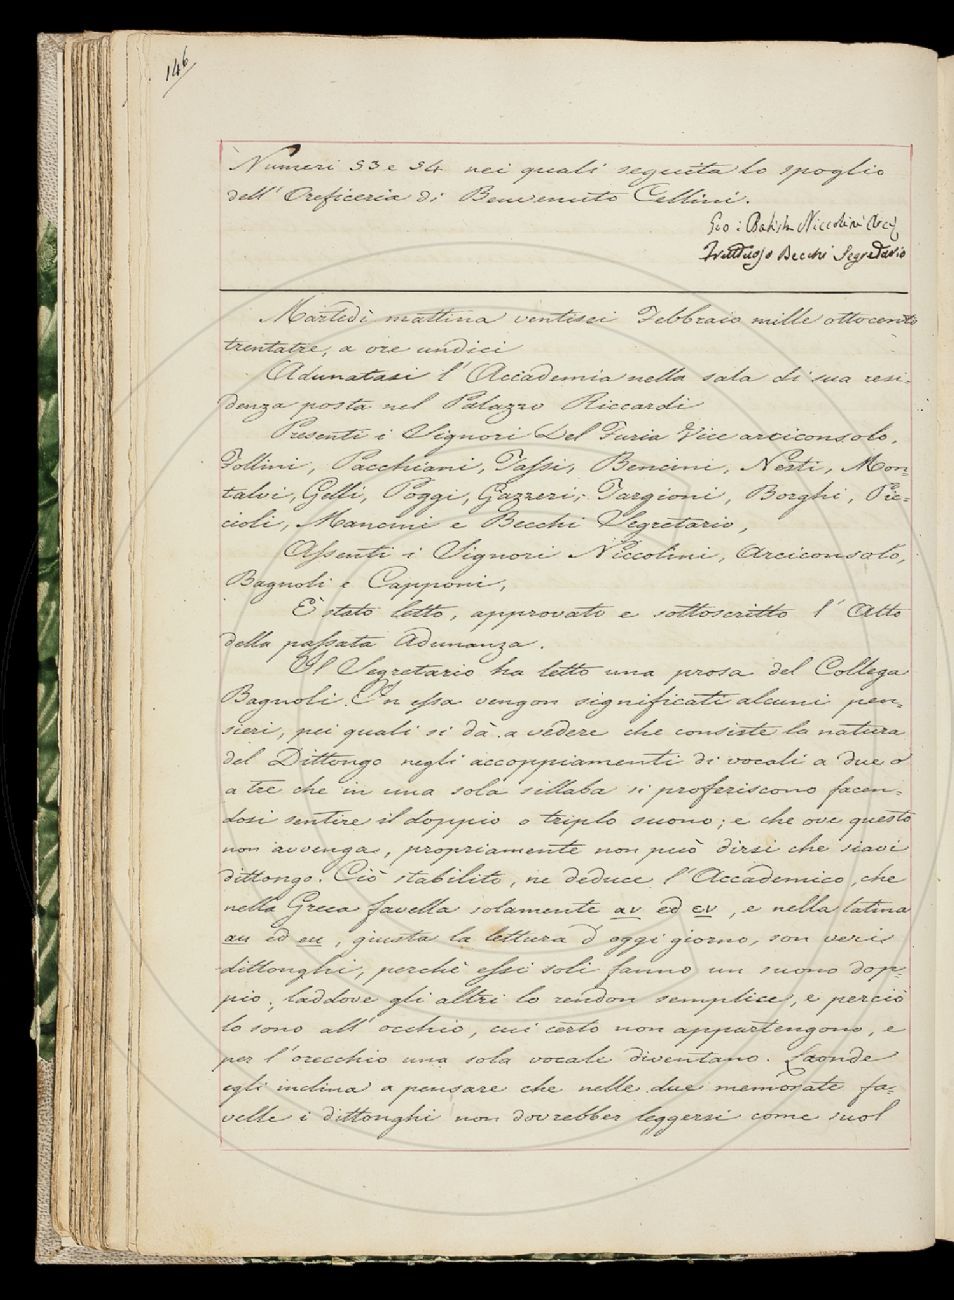 146
Numeri 53 e 54 nei quali seguita lo spoglio
dell' Oreficeria di Benvenuto Cellini.
Gio: Batista Niccolini Arci
Fruttuoso Becchi Segretario
Martedì mattina ventisei Febbraio mille ottocento
trentatre, a ore undici
Adunatasi l' Accademia nella sala di sua resi-
denza posta nel Palazzo Riccardi
Presenti i Signori Del Furia Vice arciconsolo,
Follini, Pacchiani, Tassi, Bencini, Nesti, Mon-
talvi, Gelli, Poggi, Gazzeri, Targioni, Borghi, Pic-
cioli, Mancini e Becchi Segretario,
Assenti i Signori Niccolini, Arciconsolo,
Bagnoli e Capponi,
È stato letto, approvato e sottoscritto l' Atto
della passata Adunanza.
Il Segretario ha letto una prosa del Collega
Bagnoli. In essa vengon significati alcuni pen-
sieri, pei quali si dà a vedere che consiste la natura
del Dittongo negli accoppiamenti di vocali a due o
a tre che in una sola sillaba si proferiscono facen-
dosi sentire il doppio o triplo suono; e che ove questo
non avvenga, propriamente non può dirsi che siavi
dittongo. Ciò stabilito, ne deduce l' Accademico, che
nella Greca favella solamente αυ ed ευ, e nella latina
au ed eu, giusta la lettura d' oggi giorno, son veri
dittonghi, perchè essi soli fanno un suono dop-
pio, laddove gli altri lo rendon semplice, e perciò
lo sono all' occhio, cui certo non appartengono, e
per l' orecchio una sola vocale diventano. Laonde
egli inclina a pensare che nelle due memorate fa-
velle i dittonghi non dovrebber leggersi come suol